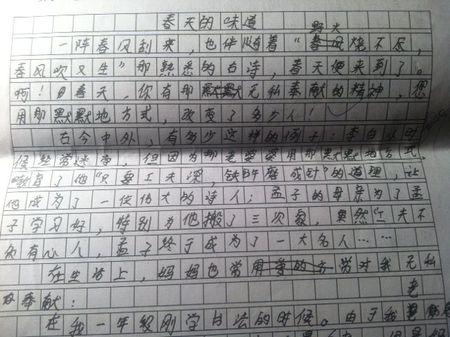 春天的味道
一阵春风刮来，也伴随着“野火烧不尽，
春风吹又生”那熟悉的古诗，春天便来到了。
啊！春天，你有那默默无私奉献的精神，您
用那默默地方式，改变了多少人！
古今中外，有多少这样的例子：李白小时
候经常逃学，但因为那老婆婆用那默默地方式，
教育了他“只要工夫深，铁杵磨成针”的道理，让
他成为了一使伟大的诗人；孟子的母亲为了孟
子学习好，特别为他搬了三次家，果然工夫不
负有心人，孟子终于成为了一大名人……
在生活上，妈妈也常常对我无私
的奉献：
在我一年级刚学书法的时候。由于我老